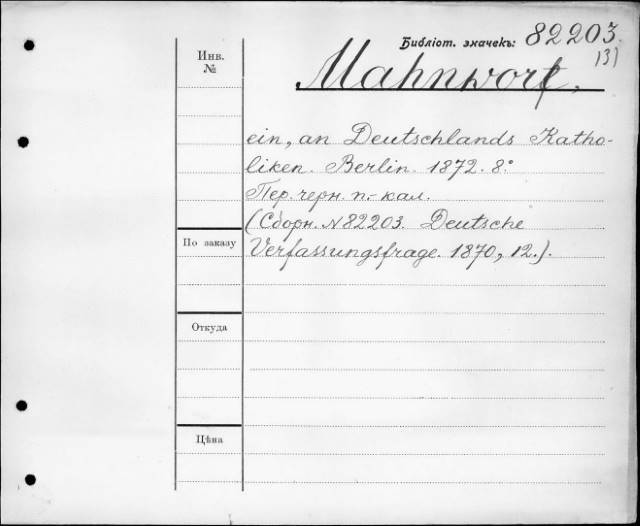 Библіот. значекъ: 82203
(3)
Инв.
№
Mahnwort,
ein, an Deutschlands Katho-
liken. Berlin. 1872. 8.°
Пер. черн. п.-кал.
(Сборн. № 82203. Deutsche
Verfassungsfrage. 1870, 12.).
По заказу
Откуда
Цѣна